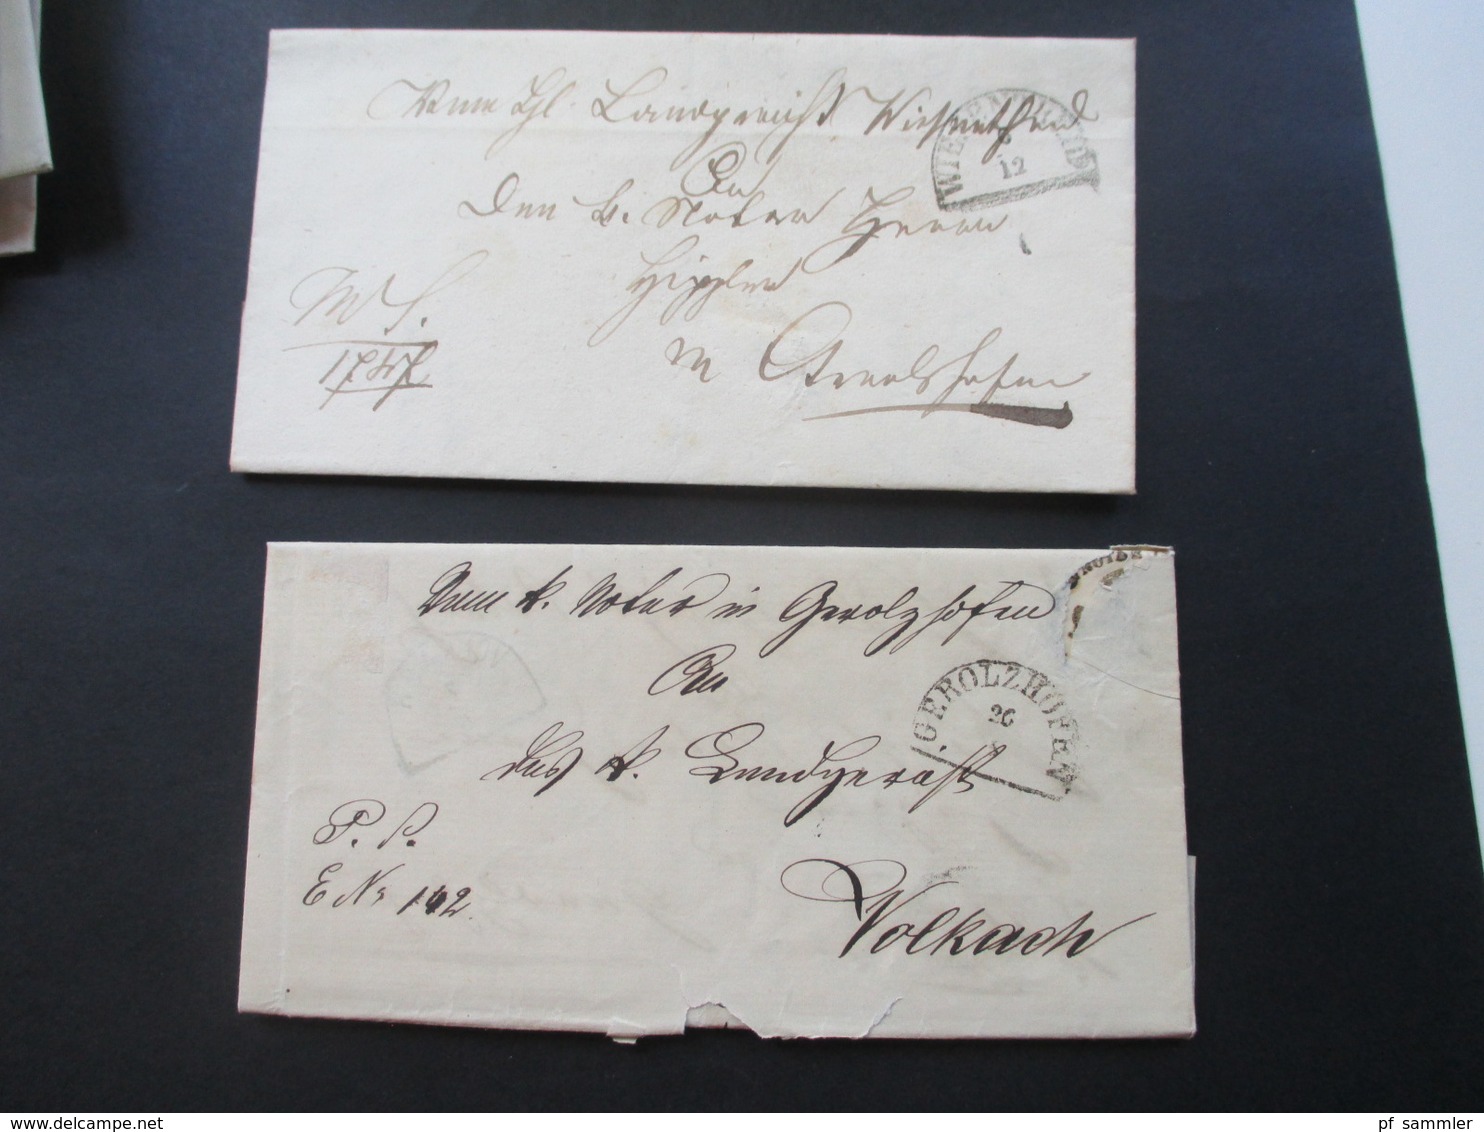 Vom Kgl. Landgericht Wiesentheid
WIESENTHEID
12
An
Den k. Notar Herrn
in
1747
Vom k. Notar in Gerolzhofen
An
GEROLZHOFEN
26
das k. Landgericht
P. S.
E Nr 142.
Volkach
pf_sammler